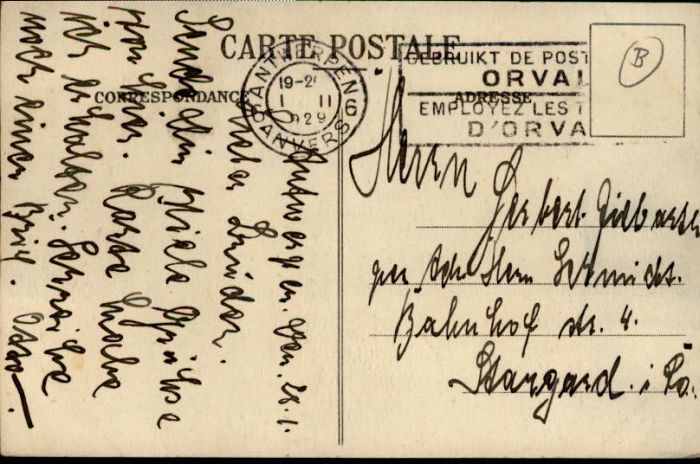 CARTE POSTALE
CORRESPONDANCE
ADRESSE
ANTWERPEN
19-2
1 II
1929
6
ANVERS
GEBRUIKT DE POST
ORVAL
EMPLOYEZ LES T
D'ORVA
B
Antwerpen. Den. 28.1.
Bruder.
Sende Dir Viele Grüsse
von hier. Karte habe
ich erhalten. Schreibe
noch einen Brief.
Herrn
Herbert
per Adr Herrn Schmidt.
Bahnhof str. 4.
Stargard. i. Po.